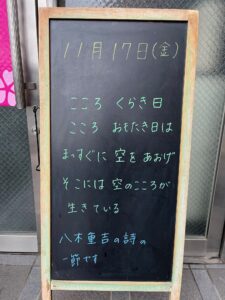 11月17日(金)
こころ くらき日
こころ おもたき日は
まっすぐに 空を あおげ
そこには 空のこころが
生きている
八木重吉の詩の
一節です